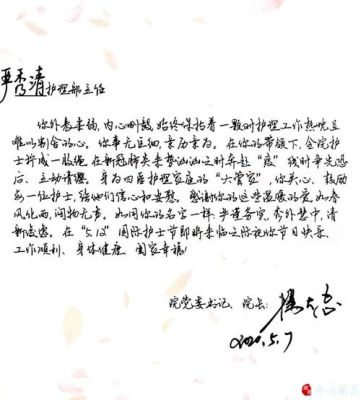 严秀清护理部主任
你外表柔弱，内心刚毅，始终保持着一颗对护理工作热忱且
难以割舍的心。你事无巨细，亲历亲为。在你的带领下，全院护
士拧成一股绳，在新冠肺炎来势汹汹之时奔赴“疫”线时争先恐
后、主动请缨。身为四医护理家庭的“大管家”，你关心、鼓励
每一位护士，给他们信心和安慰。感谢你的这些温暖的爱，如春
风化雨，润物无声。如同你的名字一样，
新 在“5.12”国际护士节即将来临之际祝你节日快乐、
工作顺利、身体健康、阖家幸福！
院党委书记、院长：
2020.5.7